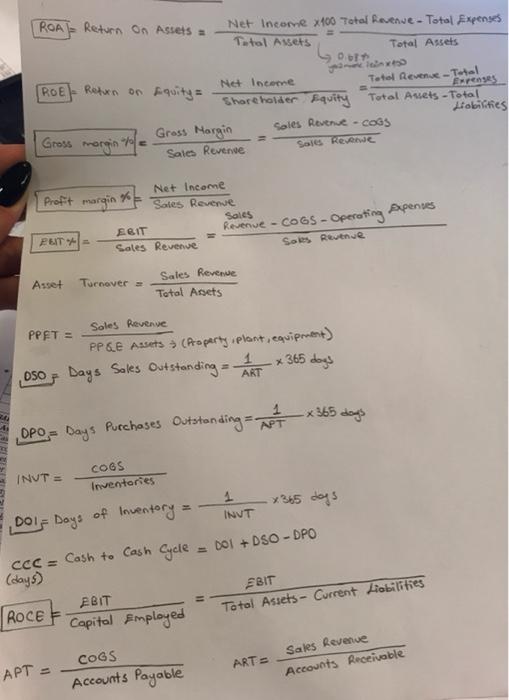 ROA = Return On Assets = Net Income x100 / Total Assets = Total Revenue - Total Expenses / Total Assets
ROE = Return on Equity = Net Income / Shareholder Equity = Total Revenue - Total Expenses / Total Assets - Total Liabilities
Gross margin % = Gross Margin / Sales Revenue = Sales Revenue - COGS / Sales Revenue
Profit margin % = Net Income / Sales Revenue
EBIT % = EBIT / Sales Revenue = Sales Revenue - COGS - Operating Expenses / Sales Revenue
Asset Turnover = Sales Revenue / Total Assets
PPET = Sales Revenue / PP&E Assets → (Property, plant, equipment)
DSO = Days Sales Outstanding = 1 / ART x 365 days
DPO = Days Purchases Outstanding = 1 / APT x 365 days
INVT = COGS / Inventories
DOI = Days of Inventory = 1 / INVT x 365 days
CCC = Cash to Cash Cycle = DOI + DSO - DPO
(days)
ROCE = EBIT / Capital Employed = EBIT / Total Assets - Current Liabilities
APT = COGS / Accounts Payable
ART = Sales Revenue / Accounts Receivable